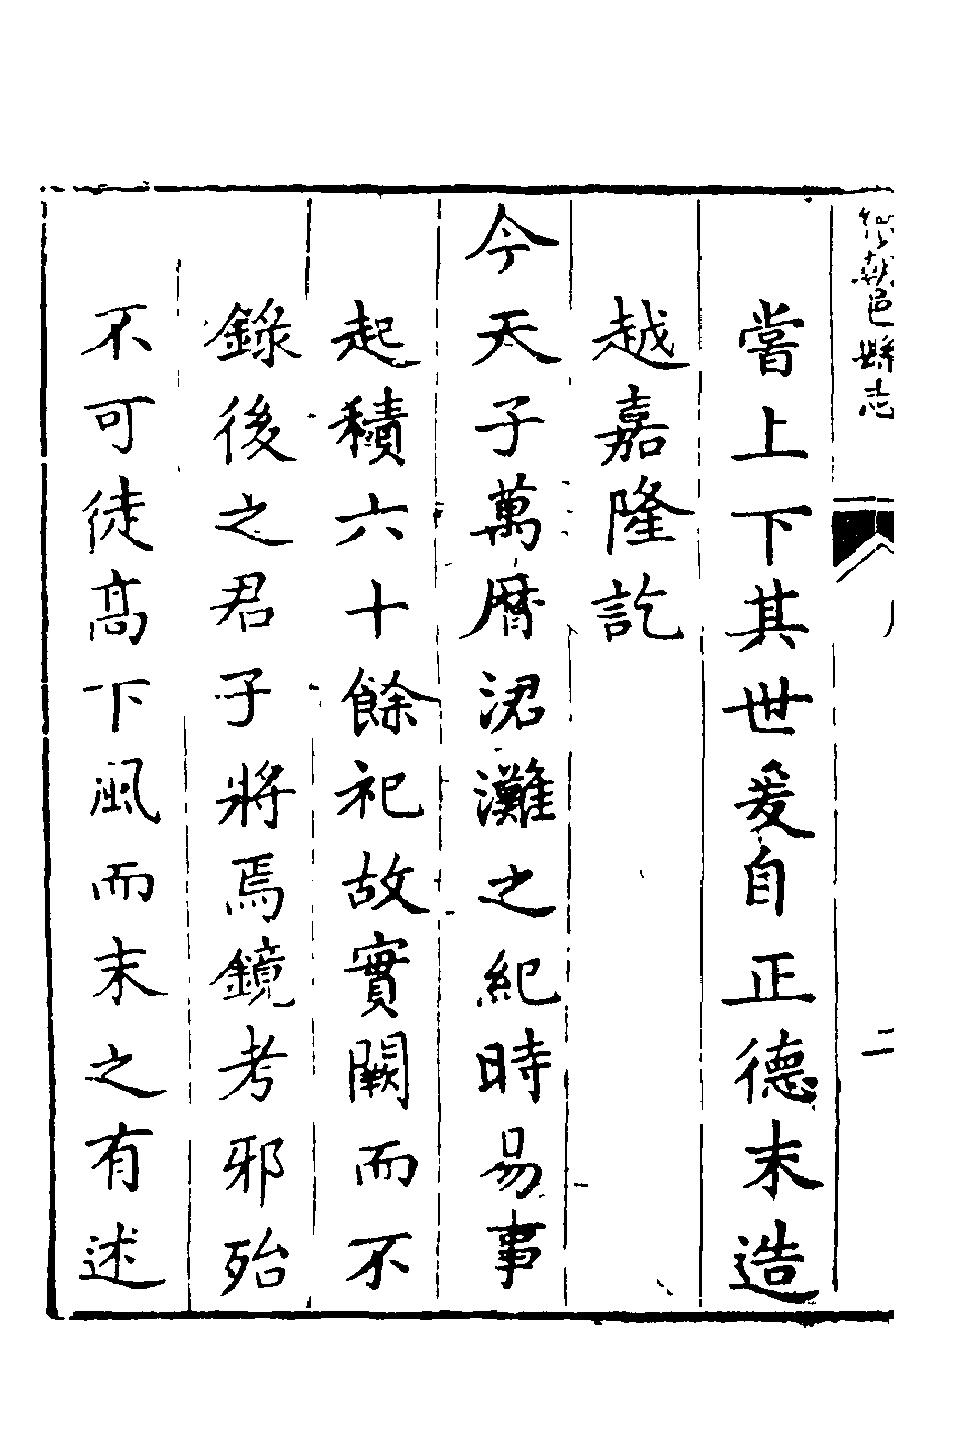 縣志
二
嘗上下其世爰自正德末造
越嘉隆訖
今天子萬曆涒灘之紀時易事
起積六十餘祀故實闕而不
錄後之君子將焉鏡考邪殆
不可徒高下風而末之有述